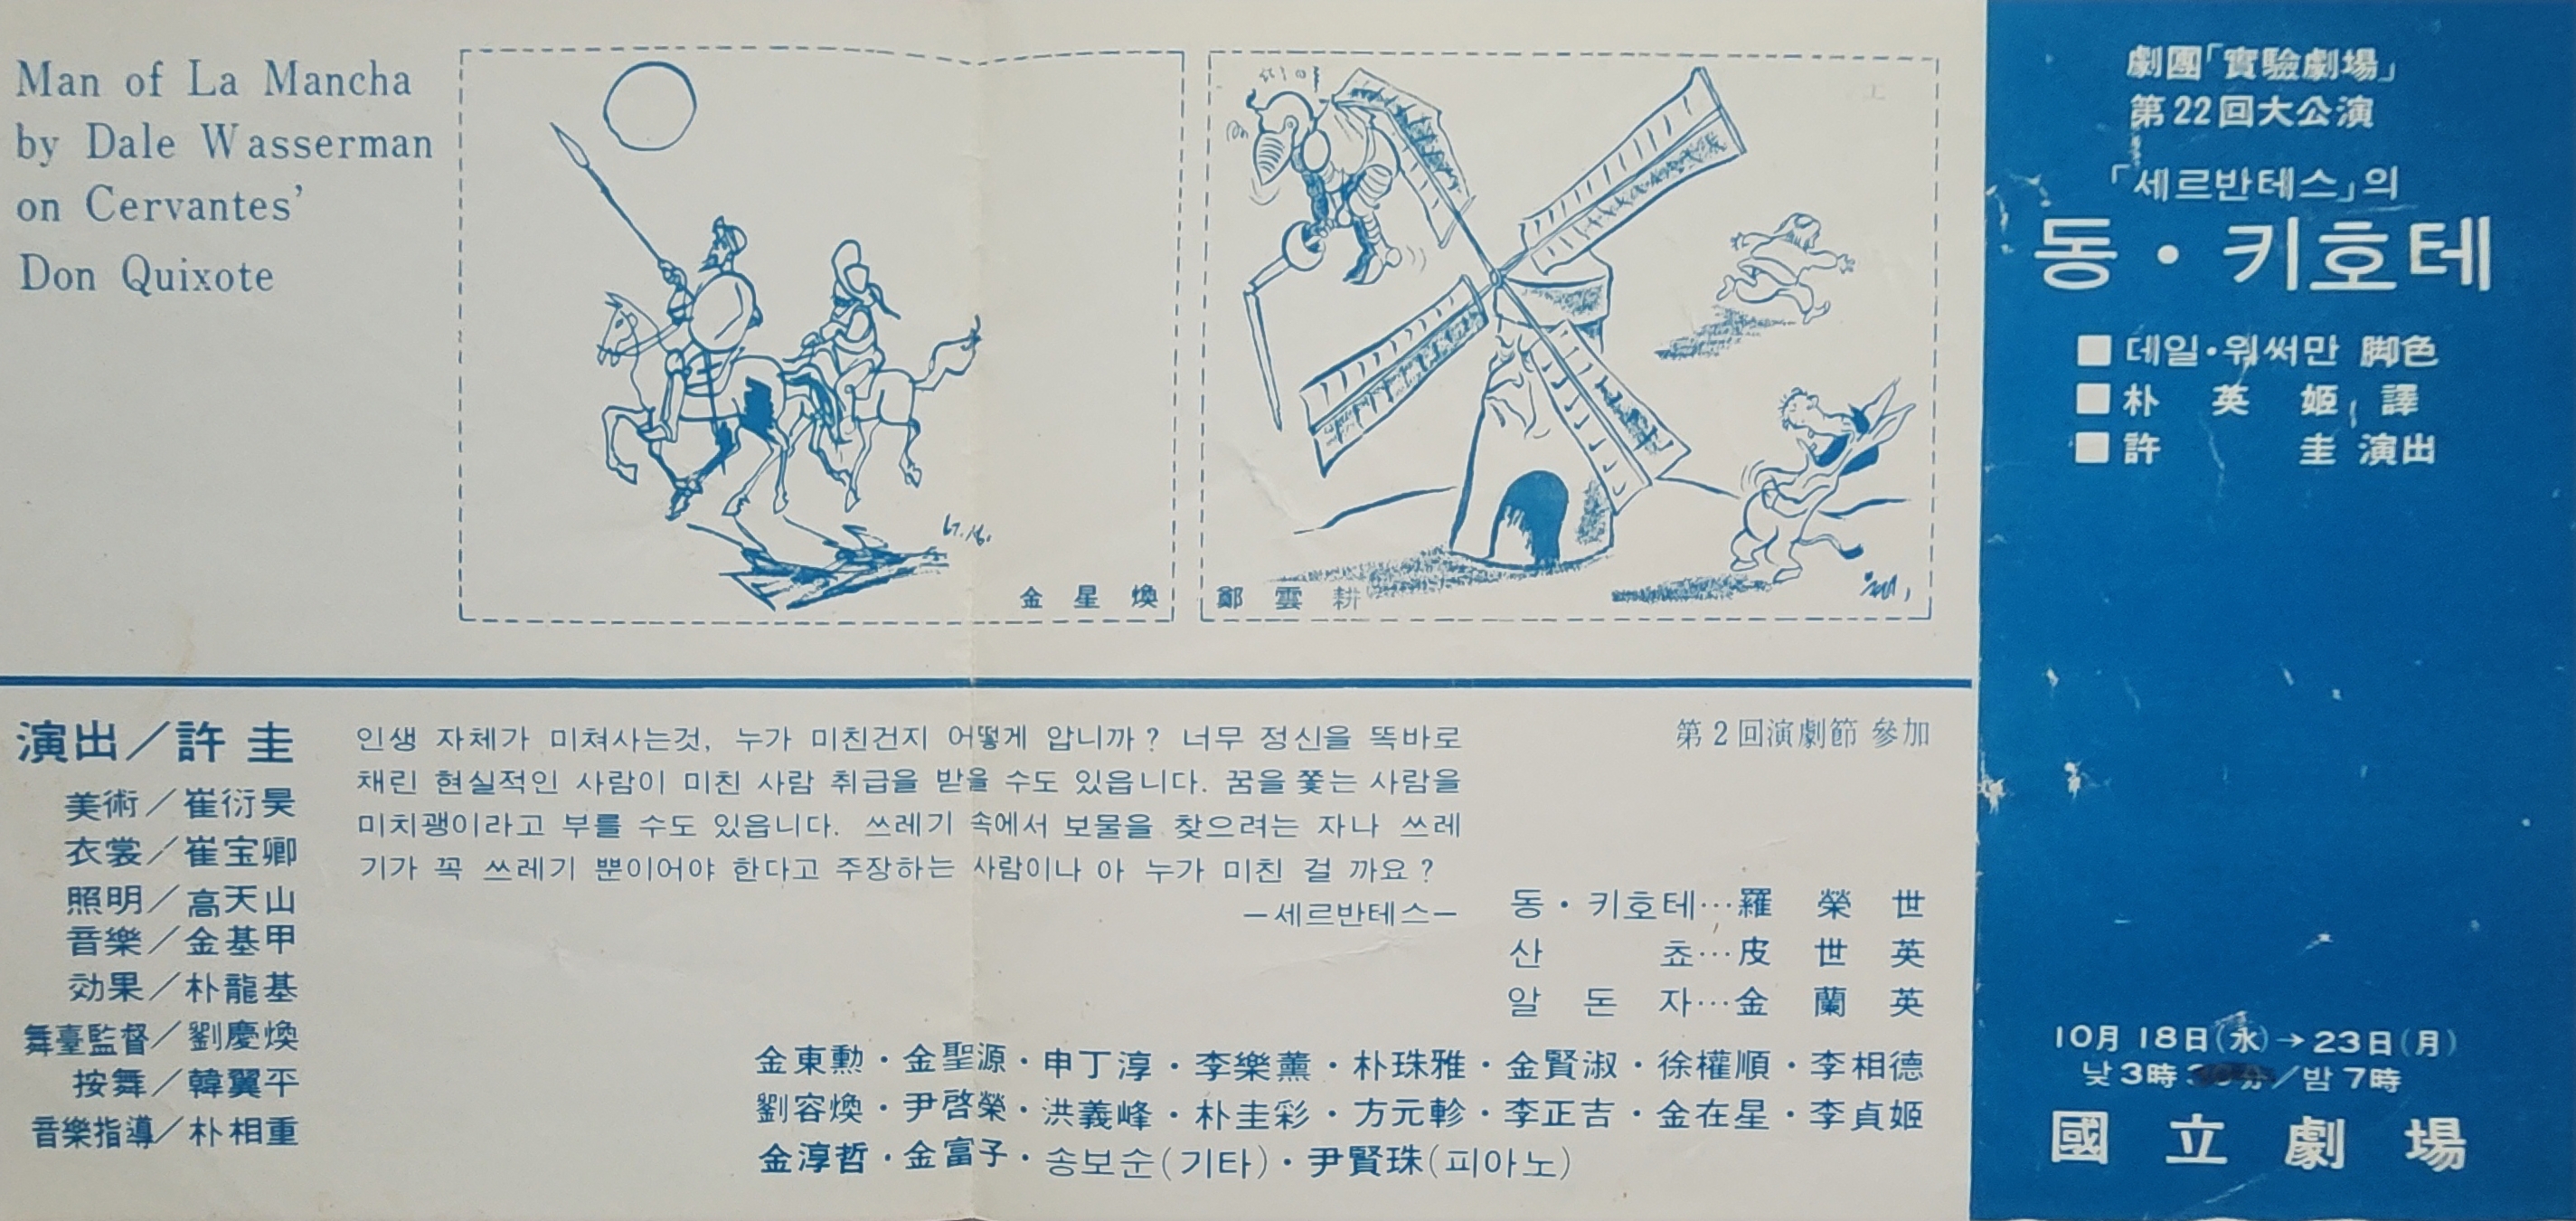 Man of La Mancha
by Dale Wasserman
on Cervantes’
Don Quixote
金星煥
鄭雲耕
劇團「實驗劇場」
第22回大公演
「세르반테스」의
동・키호테
■ 데일・워써만 脚色
■ 朴英姬 譯
■ 許圭 演出
10月 18日(水)→23日(月)
낮 3時 分/밤 7時
國立劇場
演出／許圭
美術／崔衍昊
衣裳／崔宝卿
照明／高天山
音樂／金基甲
効果／朴龍基
舞臺監督／劉慶煥
按舞／韓翼平
音樂指導／朴相重
人生 자체가 미쳐사는것, 누가 미친건지 어떻게 압니까? 너무 정신을 똑바로
채린 현실적인 사람이 미친 사람 취급을 받을 수도 있읍니다. 꿈을 쫓는 사람을
미치괭이라고 부를 수도 있읍니다. 쓰레기 속에서 보물을 찾으려는 자나 쓰레
기가 꼭 쓰레기 뿐이어야 한다고 주장하는 사람이나 아 누가 미친 걸 까요?
—세르반테스—
第2回演劇節 參加
동・키호테…羅榮世
산쵸…皮世英
알돈자…金蘭英
金東勳・金聖源・申丁淳・李樂薰・朴珠雅・金賢淑・徐權順・李相德
劉容煥・尹啓榮・洪義峰・朴圭彩・方元軫・李正吉・金在星・李貞姬
金淳哲・金富子・송보순(기타)・尹賢珠(피아노)